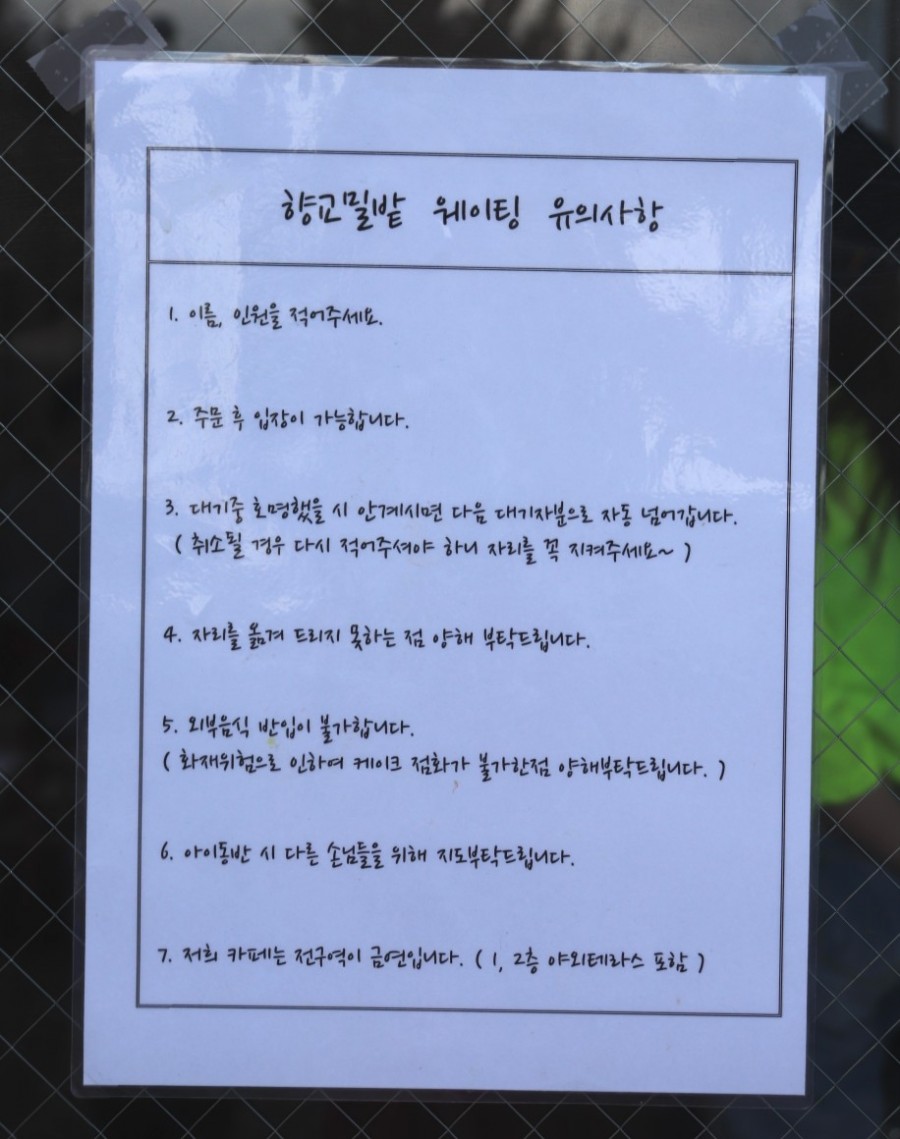 향교밀밭 웨이팅 유의사항
1. 이름, 인원을 적어주세요.
2. 주문 후 입장이 가능합니다.
3. 대기중 호명했을 시 안계시면 다음 대기자분으로 자동 넘어갑니다.
( 취소될 경우 다시 적어주셔야 하니 자리를 꼭 지켜주세요~ )
4. 자리를 옮겨 드리지 못하는 점 양해 부탁드립니다.
5. 외부음식 반입이 불가합니다.
( 화재위험으로 인하여 케이크 점화가 불가한점 양해부탁드립니다. )
6. 아이동반 시 다른 손님들을 위해 지도부탁드립니다.
7. 저희 카페는 전구역이 금연입니다. ( 1, 2층 야외테라스 포함 )